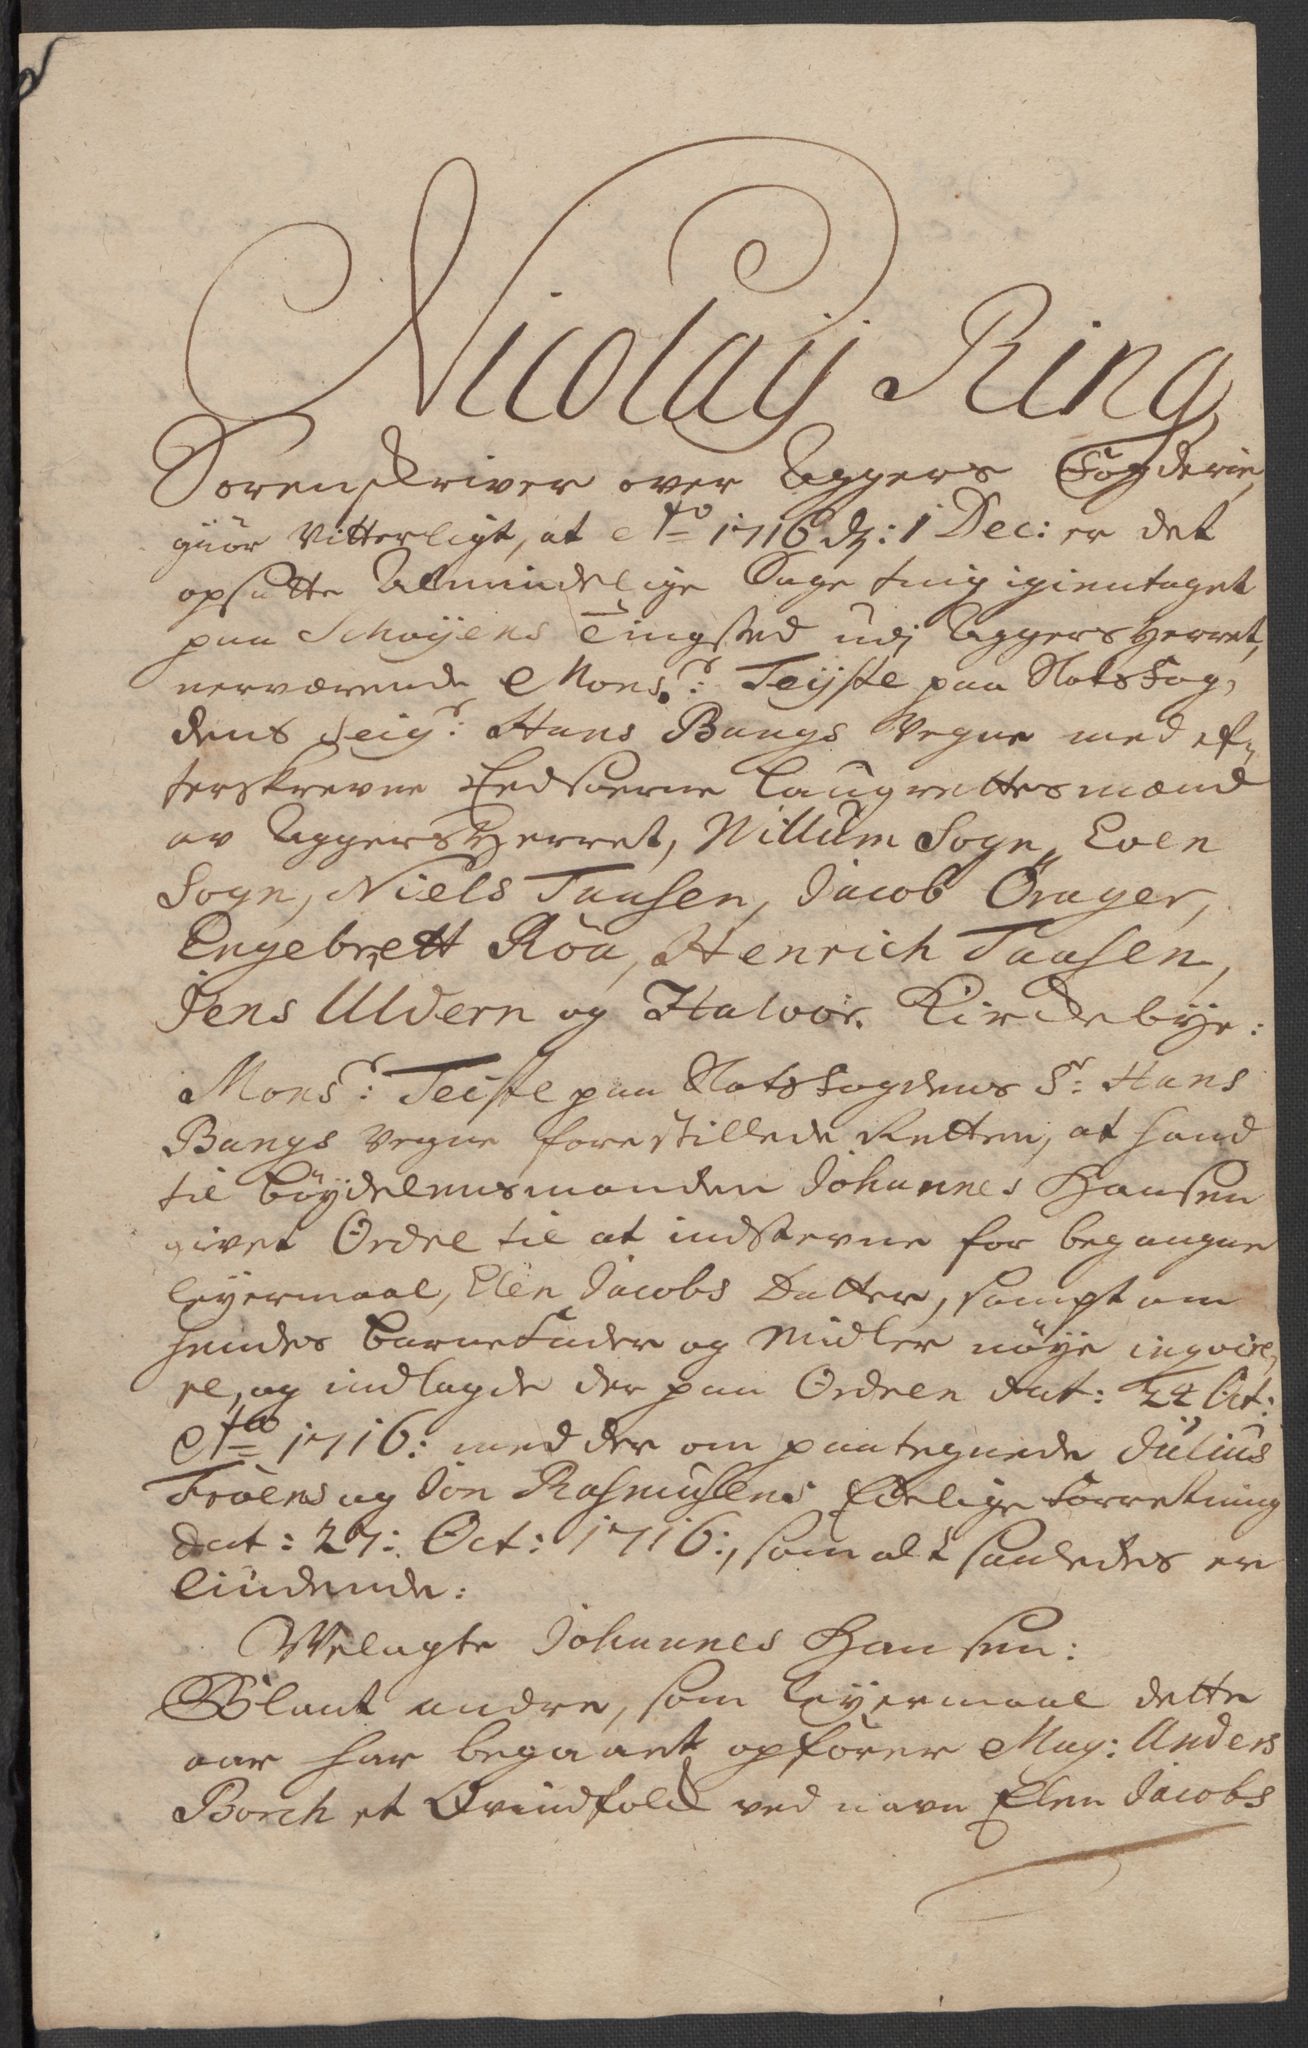 Nicolaÿ Ring
Sorenskriver over Aggers Fogderie,
giiör Vitterligt, at Ao 1716 d: 1 Dec: er det
opsatte Almindelige Sage ting igientaget
paa Schøyens Tingsted udi Aggers Herret,
nerværende Monsr: Teÿste paa Slots fog,
dens Seigr: Hans Bangs Vegne med ef,
terskrevne Eedsoerne Laugrettesmænd
av Aggers Herret, Willum Sogn, Even
Sogn, Niels Taasen, Jacob Örager,
Engebrett Röa, Henrich Taasen,
Jens Ulvern og Halvor Kirckebÿe:
Monsr: Teiste paa Slotsfogdens Sr: Hans
Bangs Vegne forestillede Retten, at hand
til böydelensmanden Johannes Hansen
givet Ordre til at indstevne for begangne
leyermaal, Elen Jacobs Datter, sampt om
hendes barnefader og Midler nöÿe inqvire,
re, og indlagde der paa Ordren dat: 22 Oct:
Ao 1716: med der om paategnede Julius
Tröens og Jon Rasmusens Edelige Forretning
dat: 27: Oct: 1716:, som alt saaledes er
liudende:
Welagte Johannes Hansen:
Blant andre, som leÿermaal dette
aar har begaaet opförer Mag: Anders
Borch et Qvindfolck ved navn Elen Jacobs